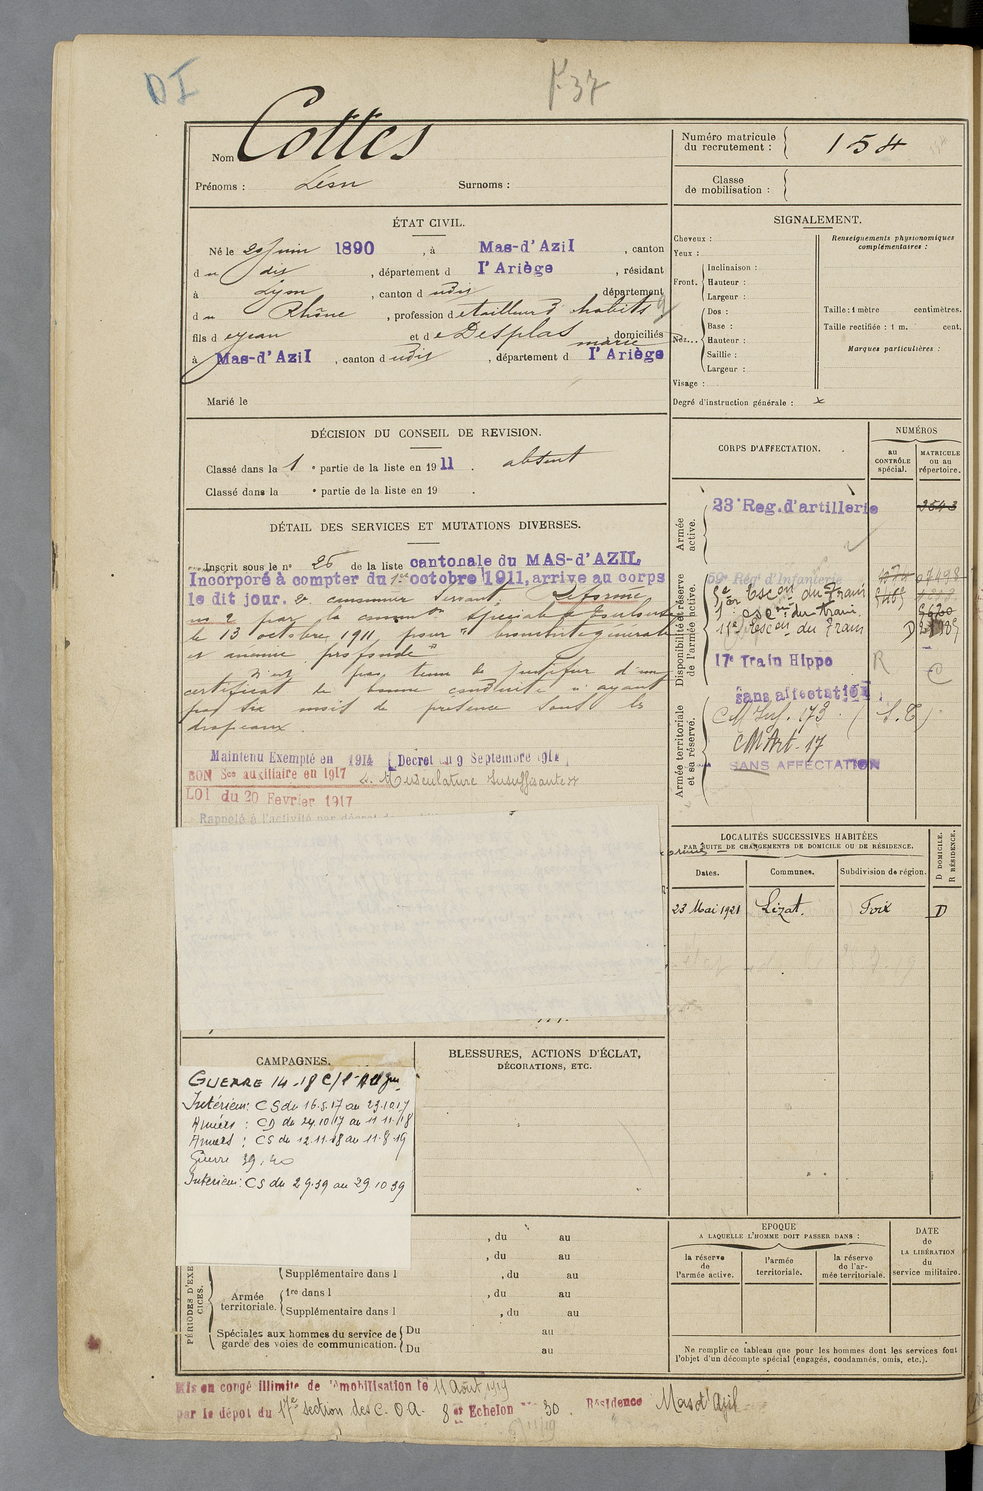 D I
F 37
Nom Cottes
Prénoms : Léon Surnoms :
Numéro matricule
du recrutement : 154
Classe
de mobilisation :
ÉTAT CIVIL.
Né le 20 Juin 1890, à Mas-d'Azil, canton
du dit, département d l'Ariège, résidant
à Lyon, canton d udit département
du Rhône, profession de tailleur d'habits
fils de Jean et de Desplas marie domiciliés
à Mas-d'Azil, canton dudit, département d l'Ariège
Marié le
DÉCISION DU CONSEIL DE REVISION.
Classé dans la 1e partie de la liste en 1911. absent
Classé dans la e partie de la liste en 19 .
DÉTAIL DES SERVICES ET MUTATIONS DIVERSES.
Inscrit sous le n° 26 de la liste cantonale du MAS-d'AZIL
Incorporé à compter du 1er octobre 1911, arrive au corps
le dit jour. 2e canonnier servant. Réformé
n° 2 par la comm on spéciale de Toulouse
le 13 octobre 1911 pour "bronchite générale
et anémie profonde"
N'est pas tenu de justifier d'un
certificat de bonne conduite n'ayant
pas six mois de présence sous les
drapeaux.
Maintenu Exempté en 1914 [Décret du 9 Septembre 1914]
BON Sce auxiliaire en 1917 Musculature insuffisante
LOI du 20 Fevrier 1917
Rappelé à l'activité par décret
SIGNALEMENT.
Cheveux :
Yeux :
Front. Inclinaison :
Hauteur :
Largeur :
Nez... Dos :
Base :
Hauteur :
Saillie :
Largeur :
Visage :
Renseignements physionomiques
complémentaires :
Taille : 1 mètre centimètres.
Taille rectifiée : 1 m. cent.
Marques particulières :
Degré d'instruction générale : x
CORPS D'AFFECTATION.
NUMÉROS
au
CONTRÔLE
spécial.
MATRICULE
ou au
répertoire.
Armée
active.
23e Reg. d'artillerie 3543
Disponibilité et réserve
de l'armée active.
59e Rég' d'Infanterie
Escon du Train
1er Escon du train
11e Escon du Train D
17e Train Hippo R C
sans affectation
Armée territoriale
et sa réserve.
CM Inf. 173 (S.C)
CM Art. 17
SANS AFFECTATION
LOCALITÉS SUCCESSIVES HABITÉES
PAR SUITE DE CHANGEMENTS DE DOMICILE OU DE RÉSIDENCE.
Dates. Communes. Subdivision de région. D DOMICILE. R RÉSIDENCE.
23 Mai 1921 Lizat. Foix D
CAMPAGNES.
GUERRE 14-18 C/l'Allgne
Intérieur : CS du 16.5.17 au 23.10.17
Armées : CD du 24.10.17 au 11.11.18
Armées : CS du 12.11.18 au 11.8.19
Guerre 39.40
Intérieur : CS du 2 9.39 au 29 10 39
BLESSURES, ACTIONS D'ÉCLAT,
DÉCORATIONS, ETC.
PÉRIODES D'EXERCICES.
, du au
, du au
Supplémentaire dans l , du au
Armée
territoriale.
1re dans l , du au
Supplémentaire dans l , du au
Spéciales aux hommes du service de
garde des voies de communication.
Du au
Du au
EPOQUE
A LAQUELLE L'HOMME DOIT PASSER DANS :
la réserve
de
l'armée active.
l'armée
territoriale.
la réserve
de l'ar-
mée territoriale.
DATE
de
LA LIBÉRATION
du
service militaire.
Ne remplir ce tableau que pour les hommes dont les services font
l'objet d'un décompte spécial (engagés, condamnés, omis, etc.).
Mis en congé illimité de démobilisation le 11 Août 1919
par le dépot du 17e section des C.O.A. 8e Echelon n° 30. Résidence Mas d'Azil